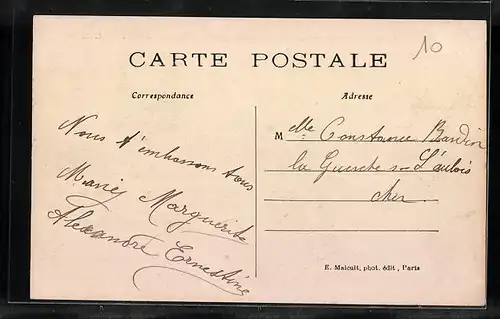 10
CARTE POSTALE
Correspondance
Adresse
Nous t'embrassons tous
Marie Marguerite
Alexandre Ernestine
M elle Constance Bardin
la Guerche s- L'aubois
cher.
E. Malcuit, phot. édit, Paris